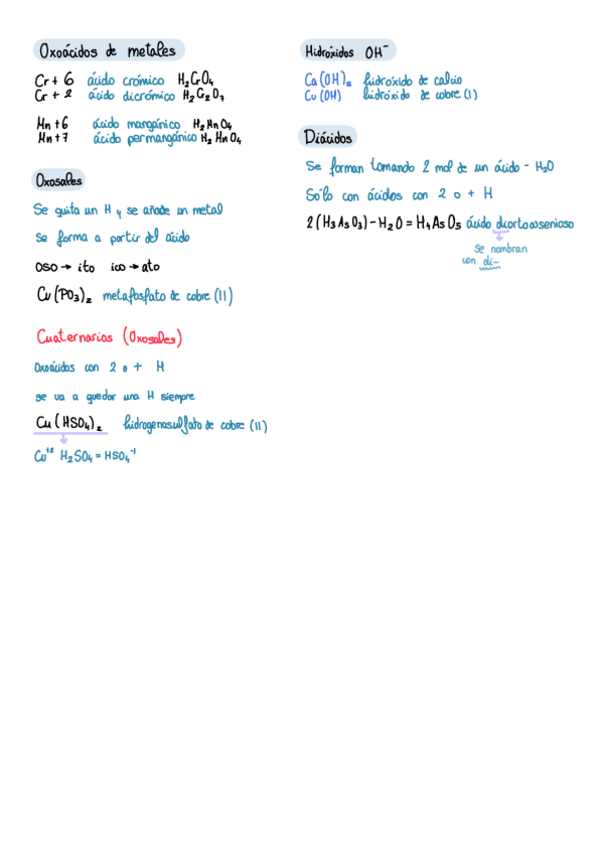 Oxoácidos de metales
Cr + 6 ácido crómico H₂CrO₄
Cr + 2 ácido dicrómico H₂Cr₂O₇
Mn +6 ácido mangánico H₂MnO₄
Mn +7 ácido permangánico H₂MnO₄
Oxosales
Se quita un H y se añade un metal
Se forma a partir del ácido
oso → ito ico → ato
Cu(PO₃)₂ metafosfato de cobre (II)
Cuaternarias (Oxosales)
Oxoácidos con 2 o + H
se va a quedar una H siempre
Cu(HSO₄)₂ hidrogenosulfato de cobre (II)
Cu⁺² H₂SO₄ = HSO₄⁻¹
Hidróxidos OH⁻
Ca(OH)₂ hidróxido de calcio
Cu(OH) hidróxido de cobre (I)
Diácidos
Se forman tomando 2 mol de un ácido - H₂O
Sólo con ácidos con 2 o + H
2(H₃AsO₃) - H₂O = H₄As₂O₅ ácido diortoarsenioso
se nombran
con di-